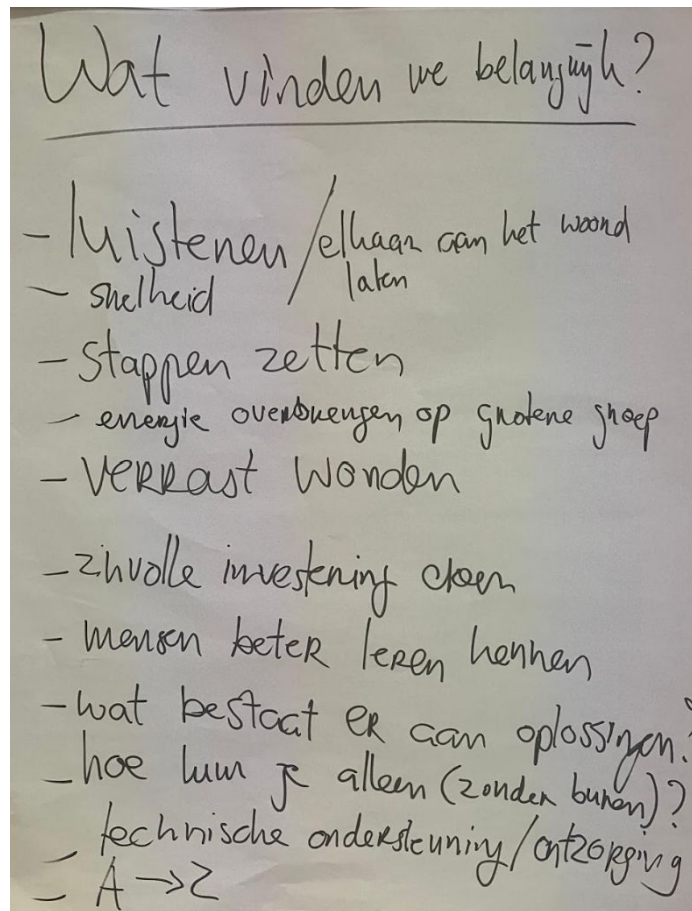 Wat vinden we belangrijk?
- luisteren / elkaar aan het woord
laten
- snelheid
- stappen zetten
- energie overbrengen op grotere groep
- VERRAST worden
- zinvolle investering doen
- mensen beter leren kennen
- wat bestaat er aan oplossingen?
- hoe kun je alleen (zonder buren)?
- technische ondersteuning/ontzorging
- A → Z